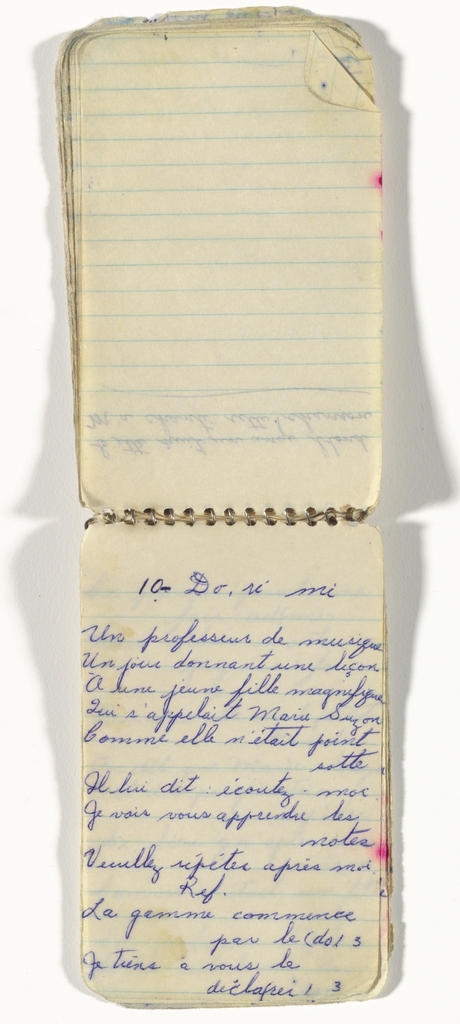 10- Do, ré mi
Un professeur de musique
Un jour donnant une leçon
À une jeune fille magnifique
Qui s'appelait Marie Suzon
Comme elle n'était point
sotte
Il lui dit : écoutez-moi
Je vais vous apprendre les
notes
Veuillez répéter après moi.
Ref.
La gamme commence
par le (do) 3
Je tiens à vous le